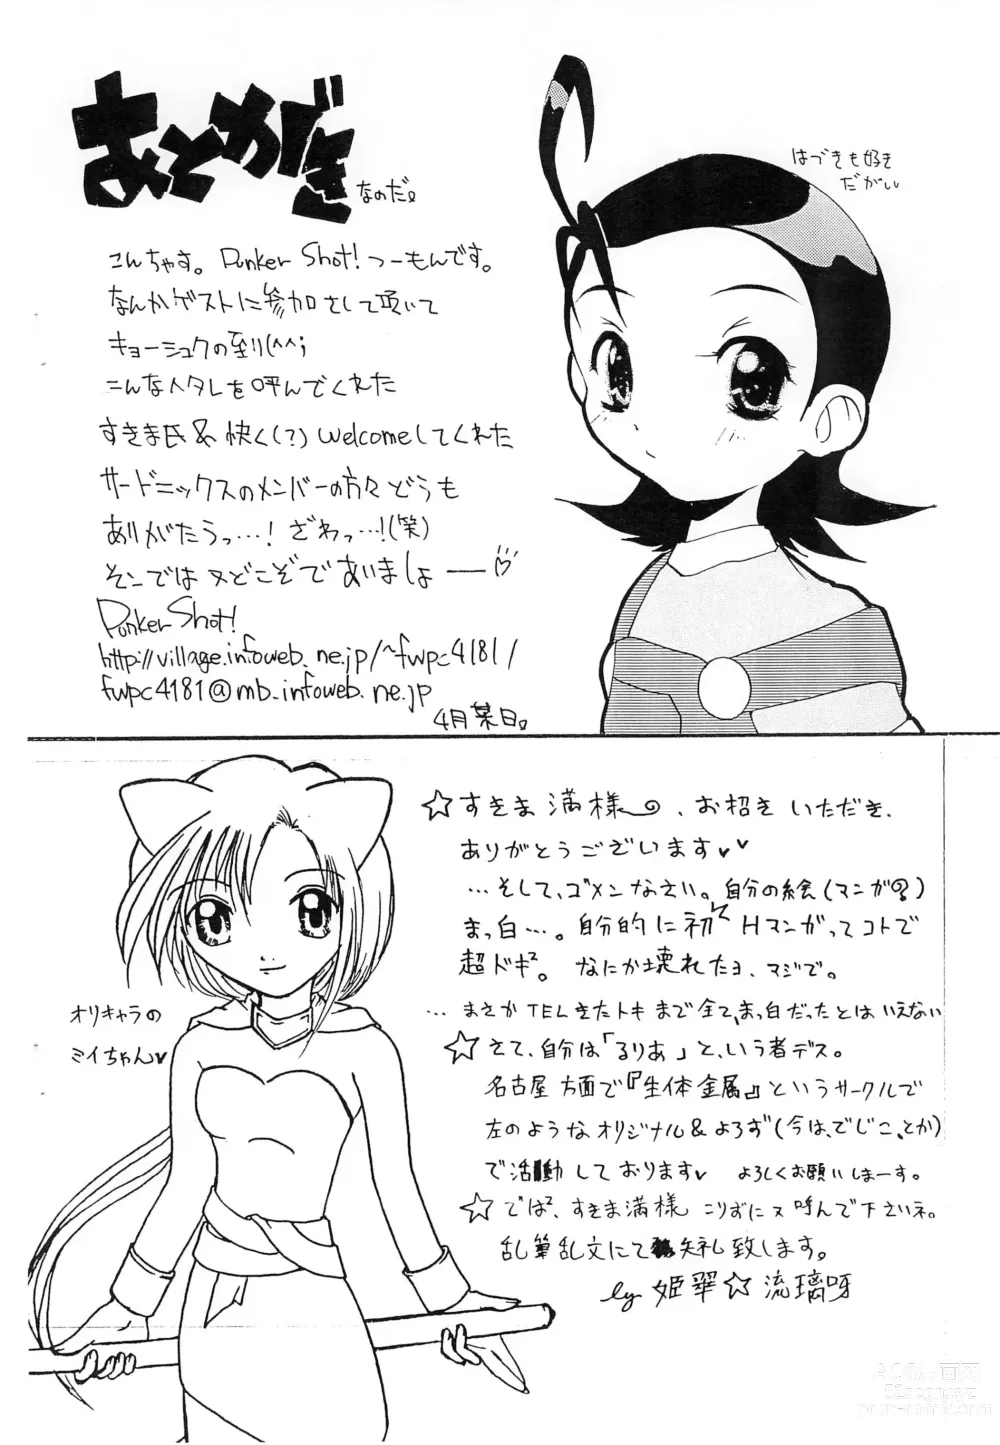 あとがき
なのだ。
はづきも好き
だがい
こんちゃす。Punker Shot!つーもんです。
なんかゲストに参加さして頂いて
キョーシュクの至り(^^;
こんなヘタレを呼んでくれた
すきま氏&快く(?)Welcomeしてくれた
サードニックスのメンバーの方々どうも
ありがたうっ…!ざわっ…!(笑)
そこでは又どこぞであいましょー
Punker Shot!
http://village.infoweb.ne.jp/~fwpc4181/
fwpc4181@mb.infoweb.ne.jp
4月某日。
☆すきま満様、お招きいただき、
ありがとうございます♥♥
…そして、ゴメンなさい。自分の絵(マンガ?)
まっ白…。自分的に初Hマンガってコトで
超ドギ²。なにか壊れたヨ、マジで。
…まさかTELきたトキまで全て、まっ白だったとはいえない
☆さて、自分は「るりあ」と、いう者デス。
名古屋方面で『生体金属』というサークルで
左のようなオリジナル&よろず(今は、でじこ、とか)
で活動しております♥よろしくお願いしまーす。
☆では²、すきま満様こりずに又呼んで下さいネ。
乱筆乱文にて失礼致します。
by 姫翠☆流璃呀
オリキャラの
ミイちゃん♥